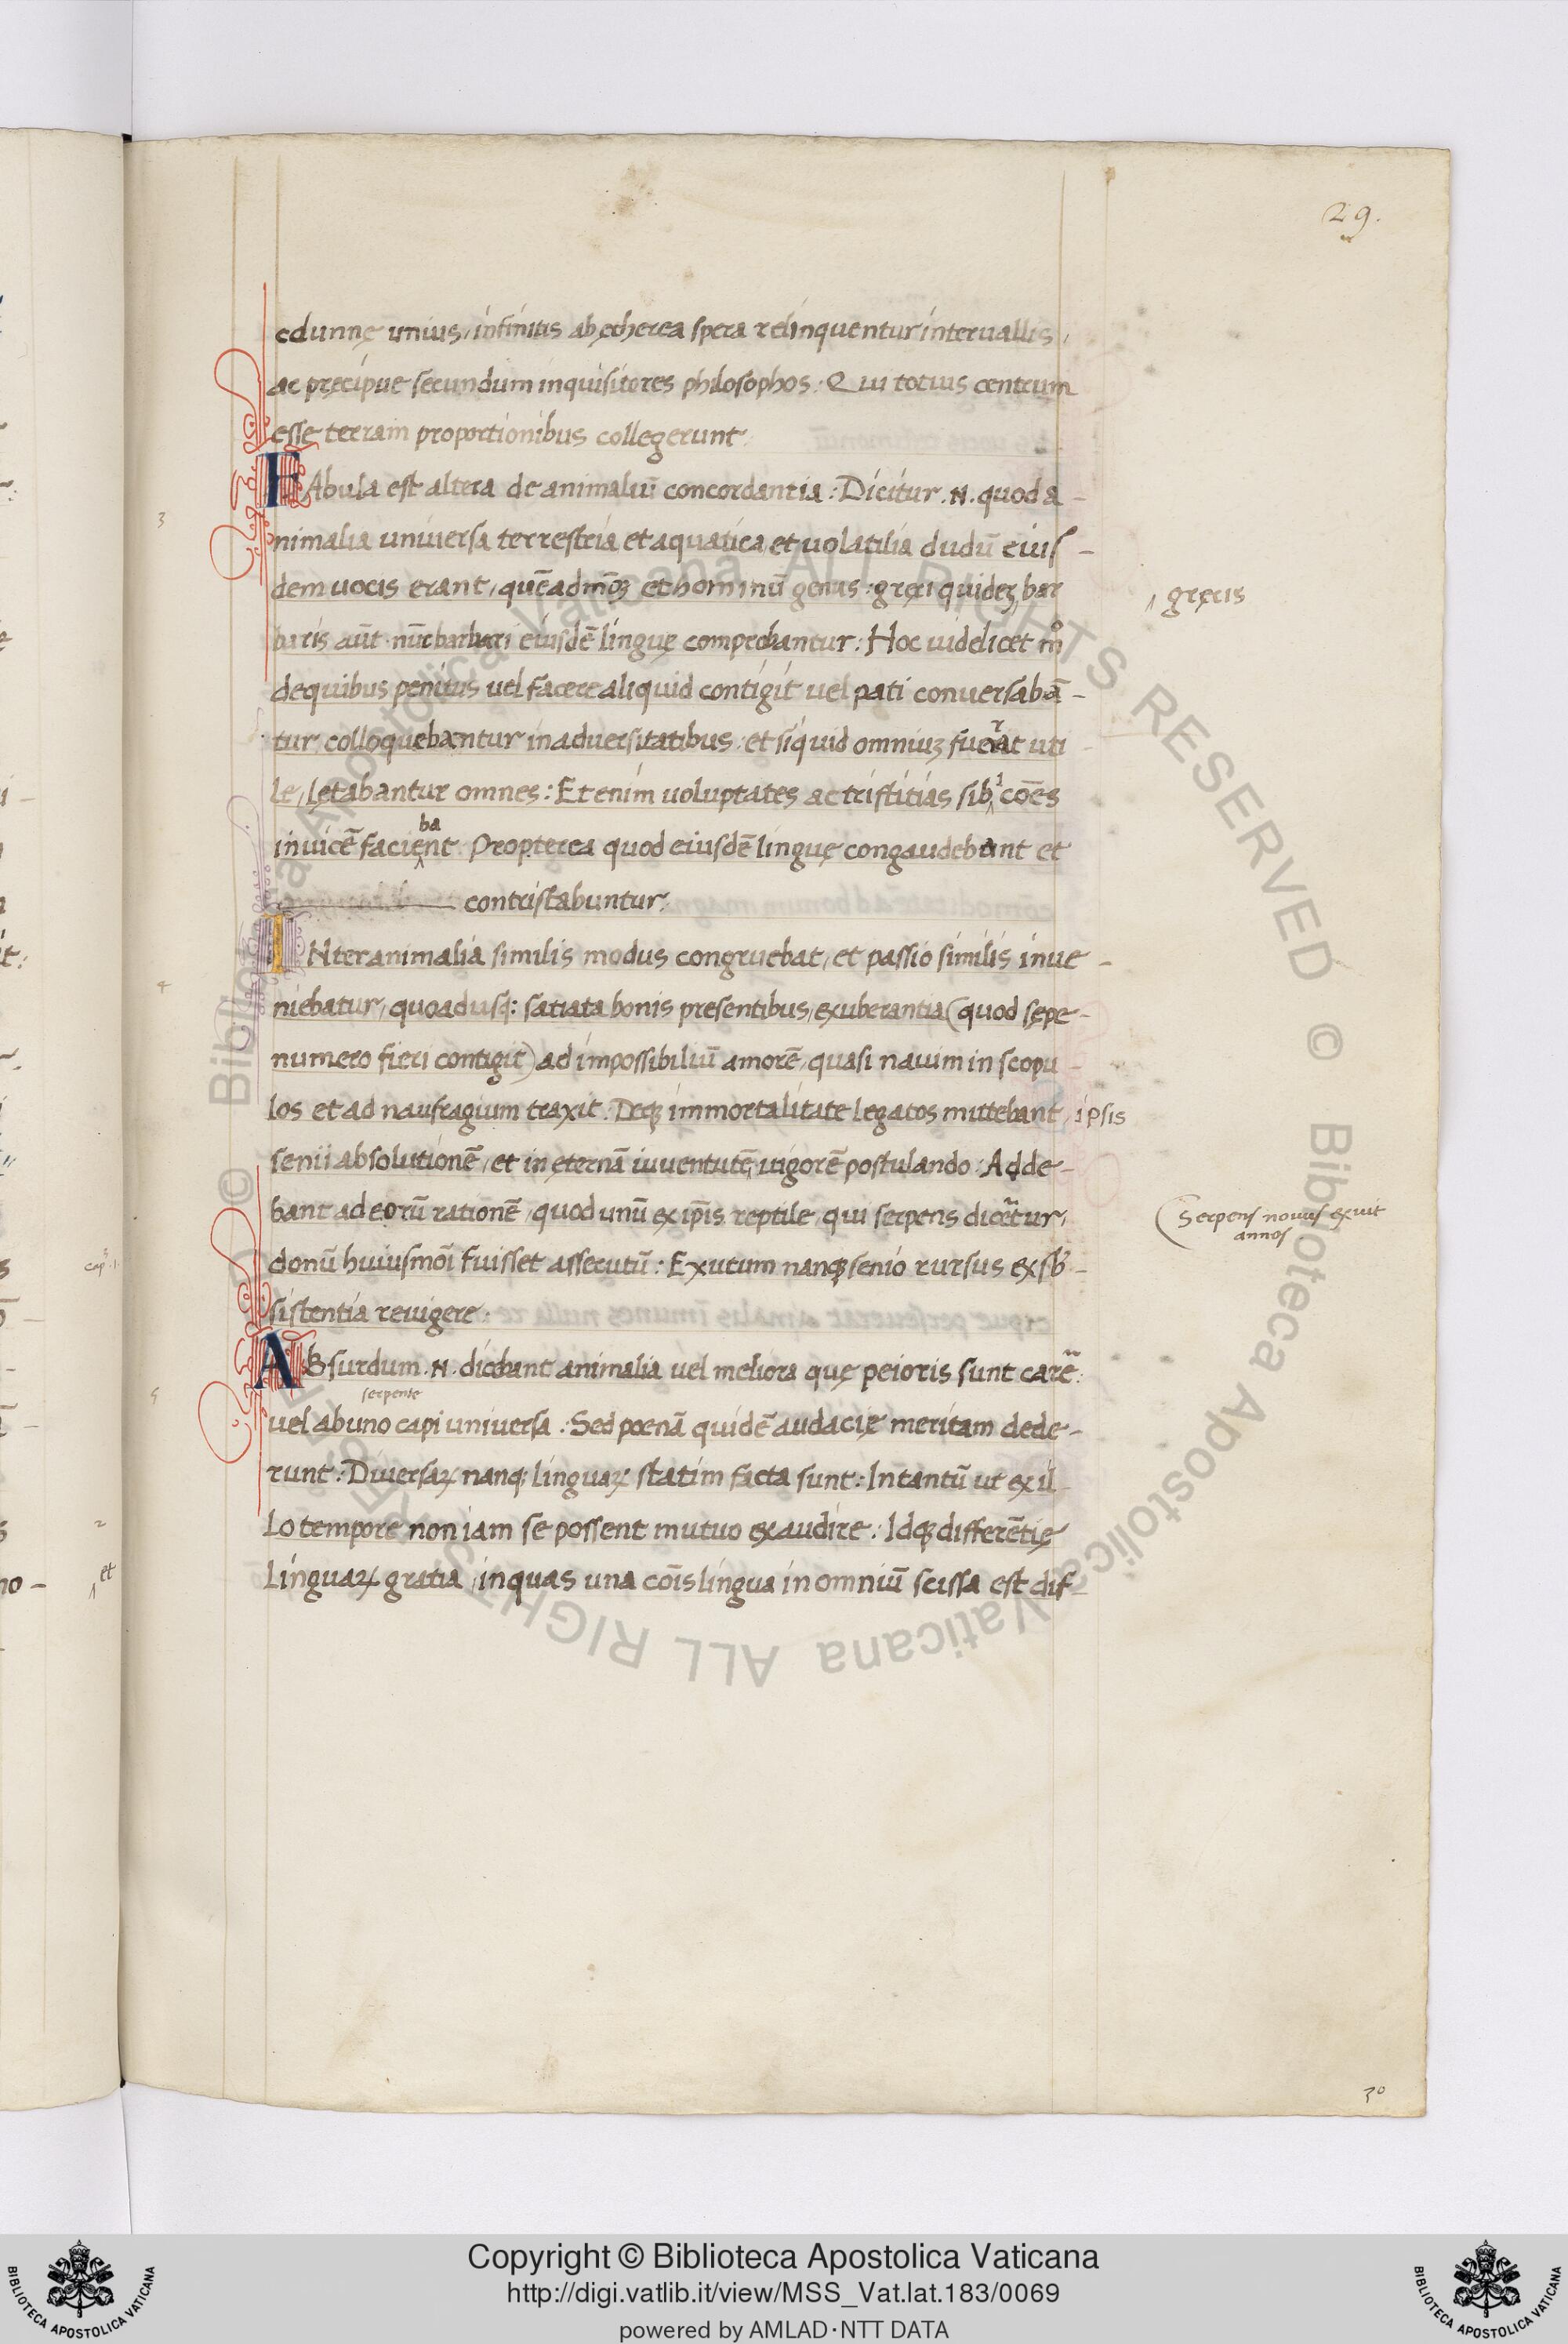 29.
cdunnę unius, infinitis ab ętherea spera relinquentur interuallis,
ac pręcipue secundum inquisitores philosophos: Qui totius centrum
esse terram proportionibus collegerunt.
FAbula est altera de animaliū concordantia: Dicitur .N. quod a-
3
nimalia uniuersa terrestria et aquatica et uolatilia dudū eius-
dem uocis erant, quēadmōꝫ et hominū genus: gręci quideꝫ bar
ʌ gręcis
baris aūt nūc barbari eiusdē linguę comprobantur: Hoc uidelicet mͦ
de quibus penitus uel facere aliquid contigit uel pati conuersabā-
tur colloquebantur in aduersitatibus: et siquid omniuꝫ fuerat uti
le, lętabantur omnes: Etenim uoluptates ac tristitias sibi cōēs
inuicē facie ba nt Propterea quod eiusdē linguę congaudebant et
contristabuntur.
INter animalia similis modus congruebat, et passio similis inue-
4
niebatur, quoadusq: satiata bonis presentibus, exuberantia (quod sępe-
numero fieri contigit) ad impossibiliū amorē, quasi nauim in scopu-
los et ad naufragium traxit. Deqꝫ immortalitate legatos mittebant, ipsis
senii absolutionē, et in ęternā iuuentutē uigorē postulando: Adde-
bant ad eorū rationē, quod unū ex ip̄is reptile, qui serpens diceretur,
(Serpens nouus exuit
annos
donū huiusmōi fuisset assecutū: Exutum nanqꝫ senio rursus ex sb-
sistentia reuigere.
ABsurdum .N. dicebant animalia uel meliora quę peioris sunt carē:
5
serpente
uel ab uno capi uniuersa: Sed poenā quidē audacię meritam dede-
runt: Diuersaꝝ nanqꝫ linguaꝝ statim facta sunt: In tantū ut ex il-
lo tempore non iam se possent mutuo exaudire: Idqꝫ differētię
linguaꝝ gratia, in quas una cōis lingua in omniū scissa est dif-
30
Copyright © Biblioteca Apostolica Vaticana
http://digi.vatlib.it/view/MSS_Vat.lat.183/0069
powered by AMLAD·NTT DATA